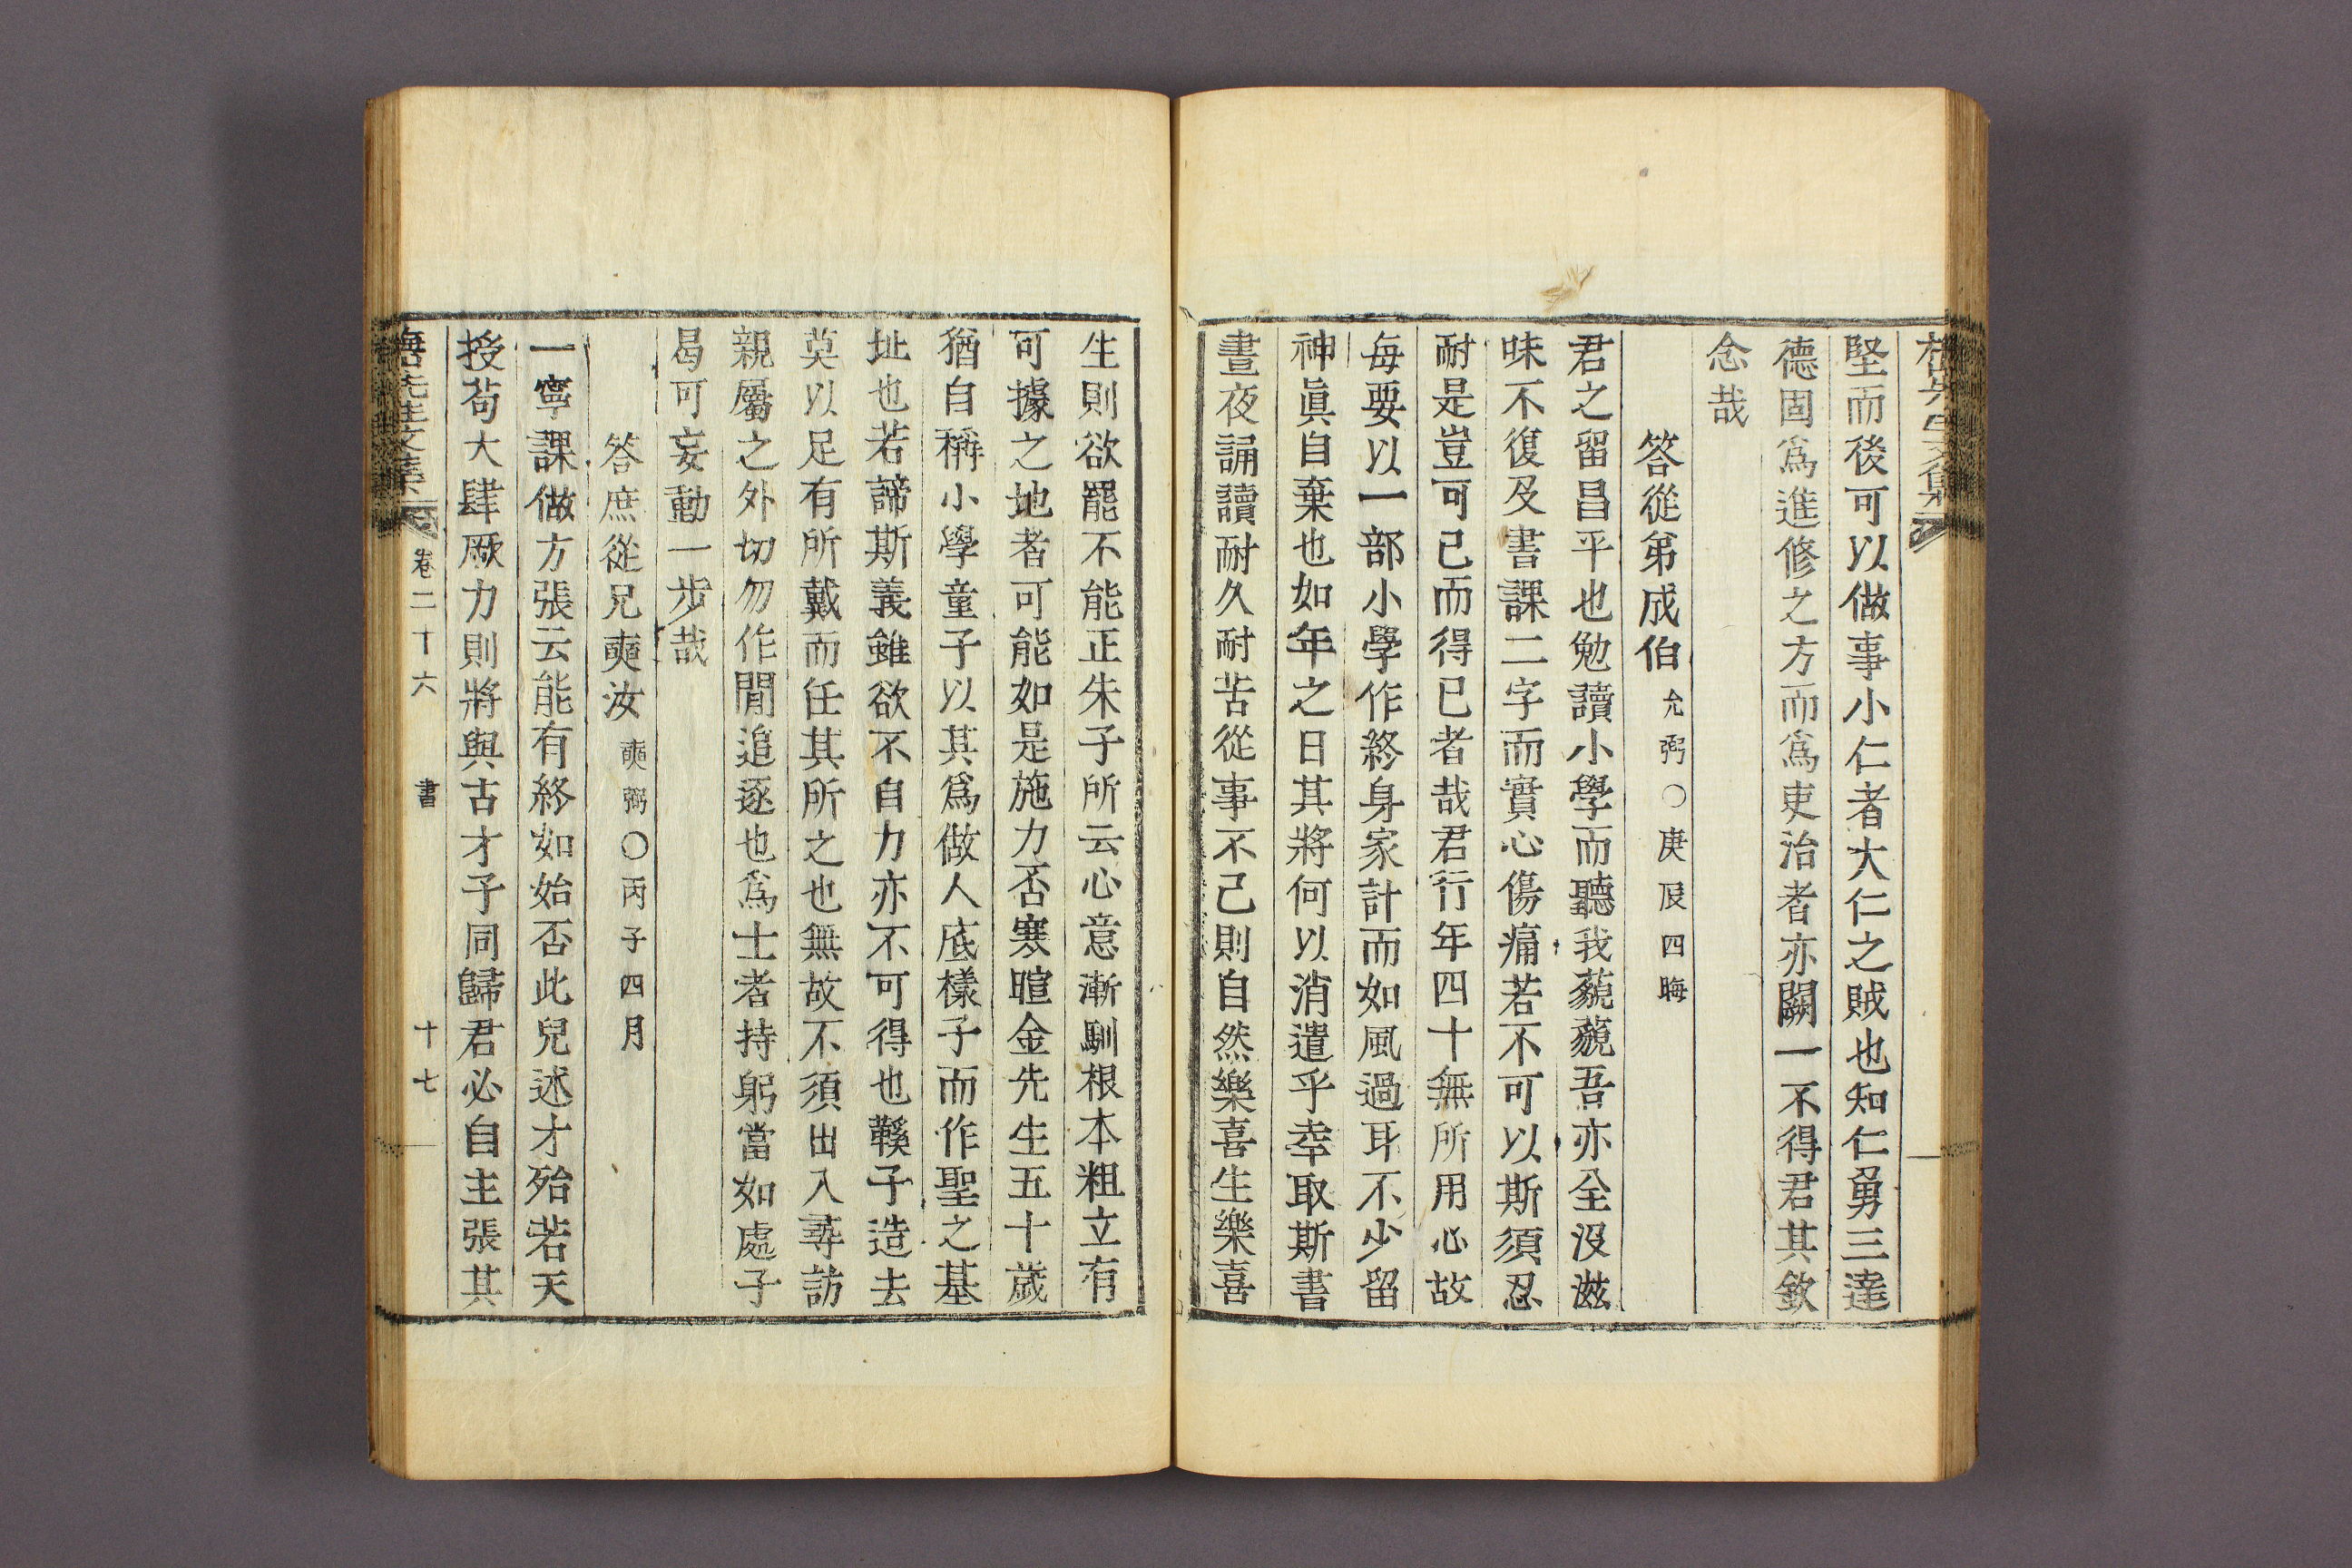 堅而後可以做事小仁者大仁之賊也知仁勇三達
德固爲進修之方而爲吏治者亦闕一不得君其欽
念哉
答從弟成伯 允弼○庚辰四晦
君之留昌平也勉讀小學而聽我藐藐吾亦全沒滋
味不復及書課二字而實心傷痛若不可以斯須忍
耐是豈可已而得已者哉君行年四十無所用心故
每要以一部小學作終身家計而如風過耳不少留
神眞自棄也如年之日其將何以消遣乎幸取斯書
晝夜誦讀耐久耐苦從事不已則自然樂喜生樂喜
生則欲罷不能正朱子所云心意漸馴根本粗立有
可據之地者可能如是施力否寒暄金先生五十歲
猶自稱小學童子以其爲做人底樣子而作聖之基
址也若諦斯義雖欲不自力亦不可得也鞵子造去
莫以足有所戴而任其所之也無故不須出入尋訪
親屬之外切勿作閒追逐也爲士者持躬當如處子
曷可妄動一步哉
答庶從兄奭汝 奭弼○丙子四月
一寗課做方張云能有終如始否此兒述才殆若天
授苟大肆厥力則將與古才子同歸君必自主張其
先生文集 卷二十六 書 十七